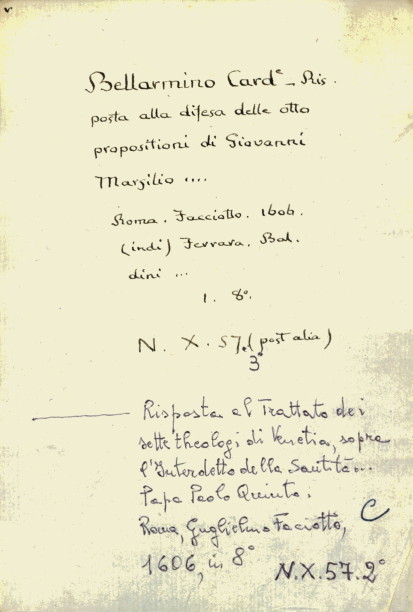 Bellarmino Card.e - Ris.
posta alla difesa delle otto
propositioni di Giovanni
Marsilio ....
Roma. Facciotto. 1606.
(indi) Ferrara, Bal
dini ...
1. 8°.
N. X. 57. (post alia)
3°
Risposta al Trattato dei
sette theologi di Venetia, sopra
l'Interdetto della Santità...
Papa Paolo Quinto.
Roma, Guglielmo Facciotto,
C
1606, in 8°
N.X.57.2°